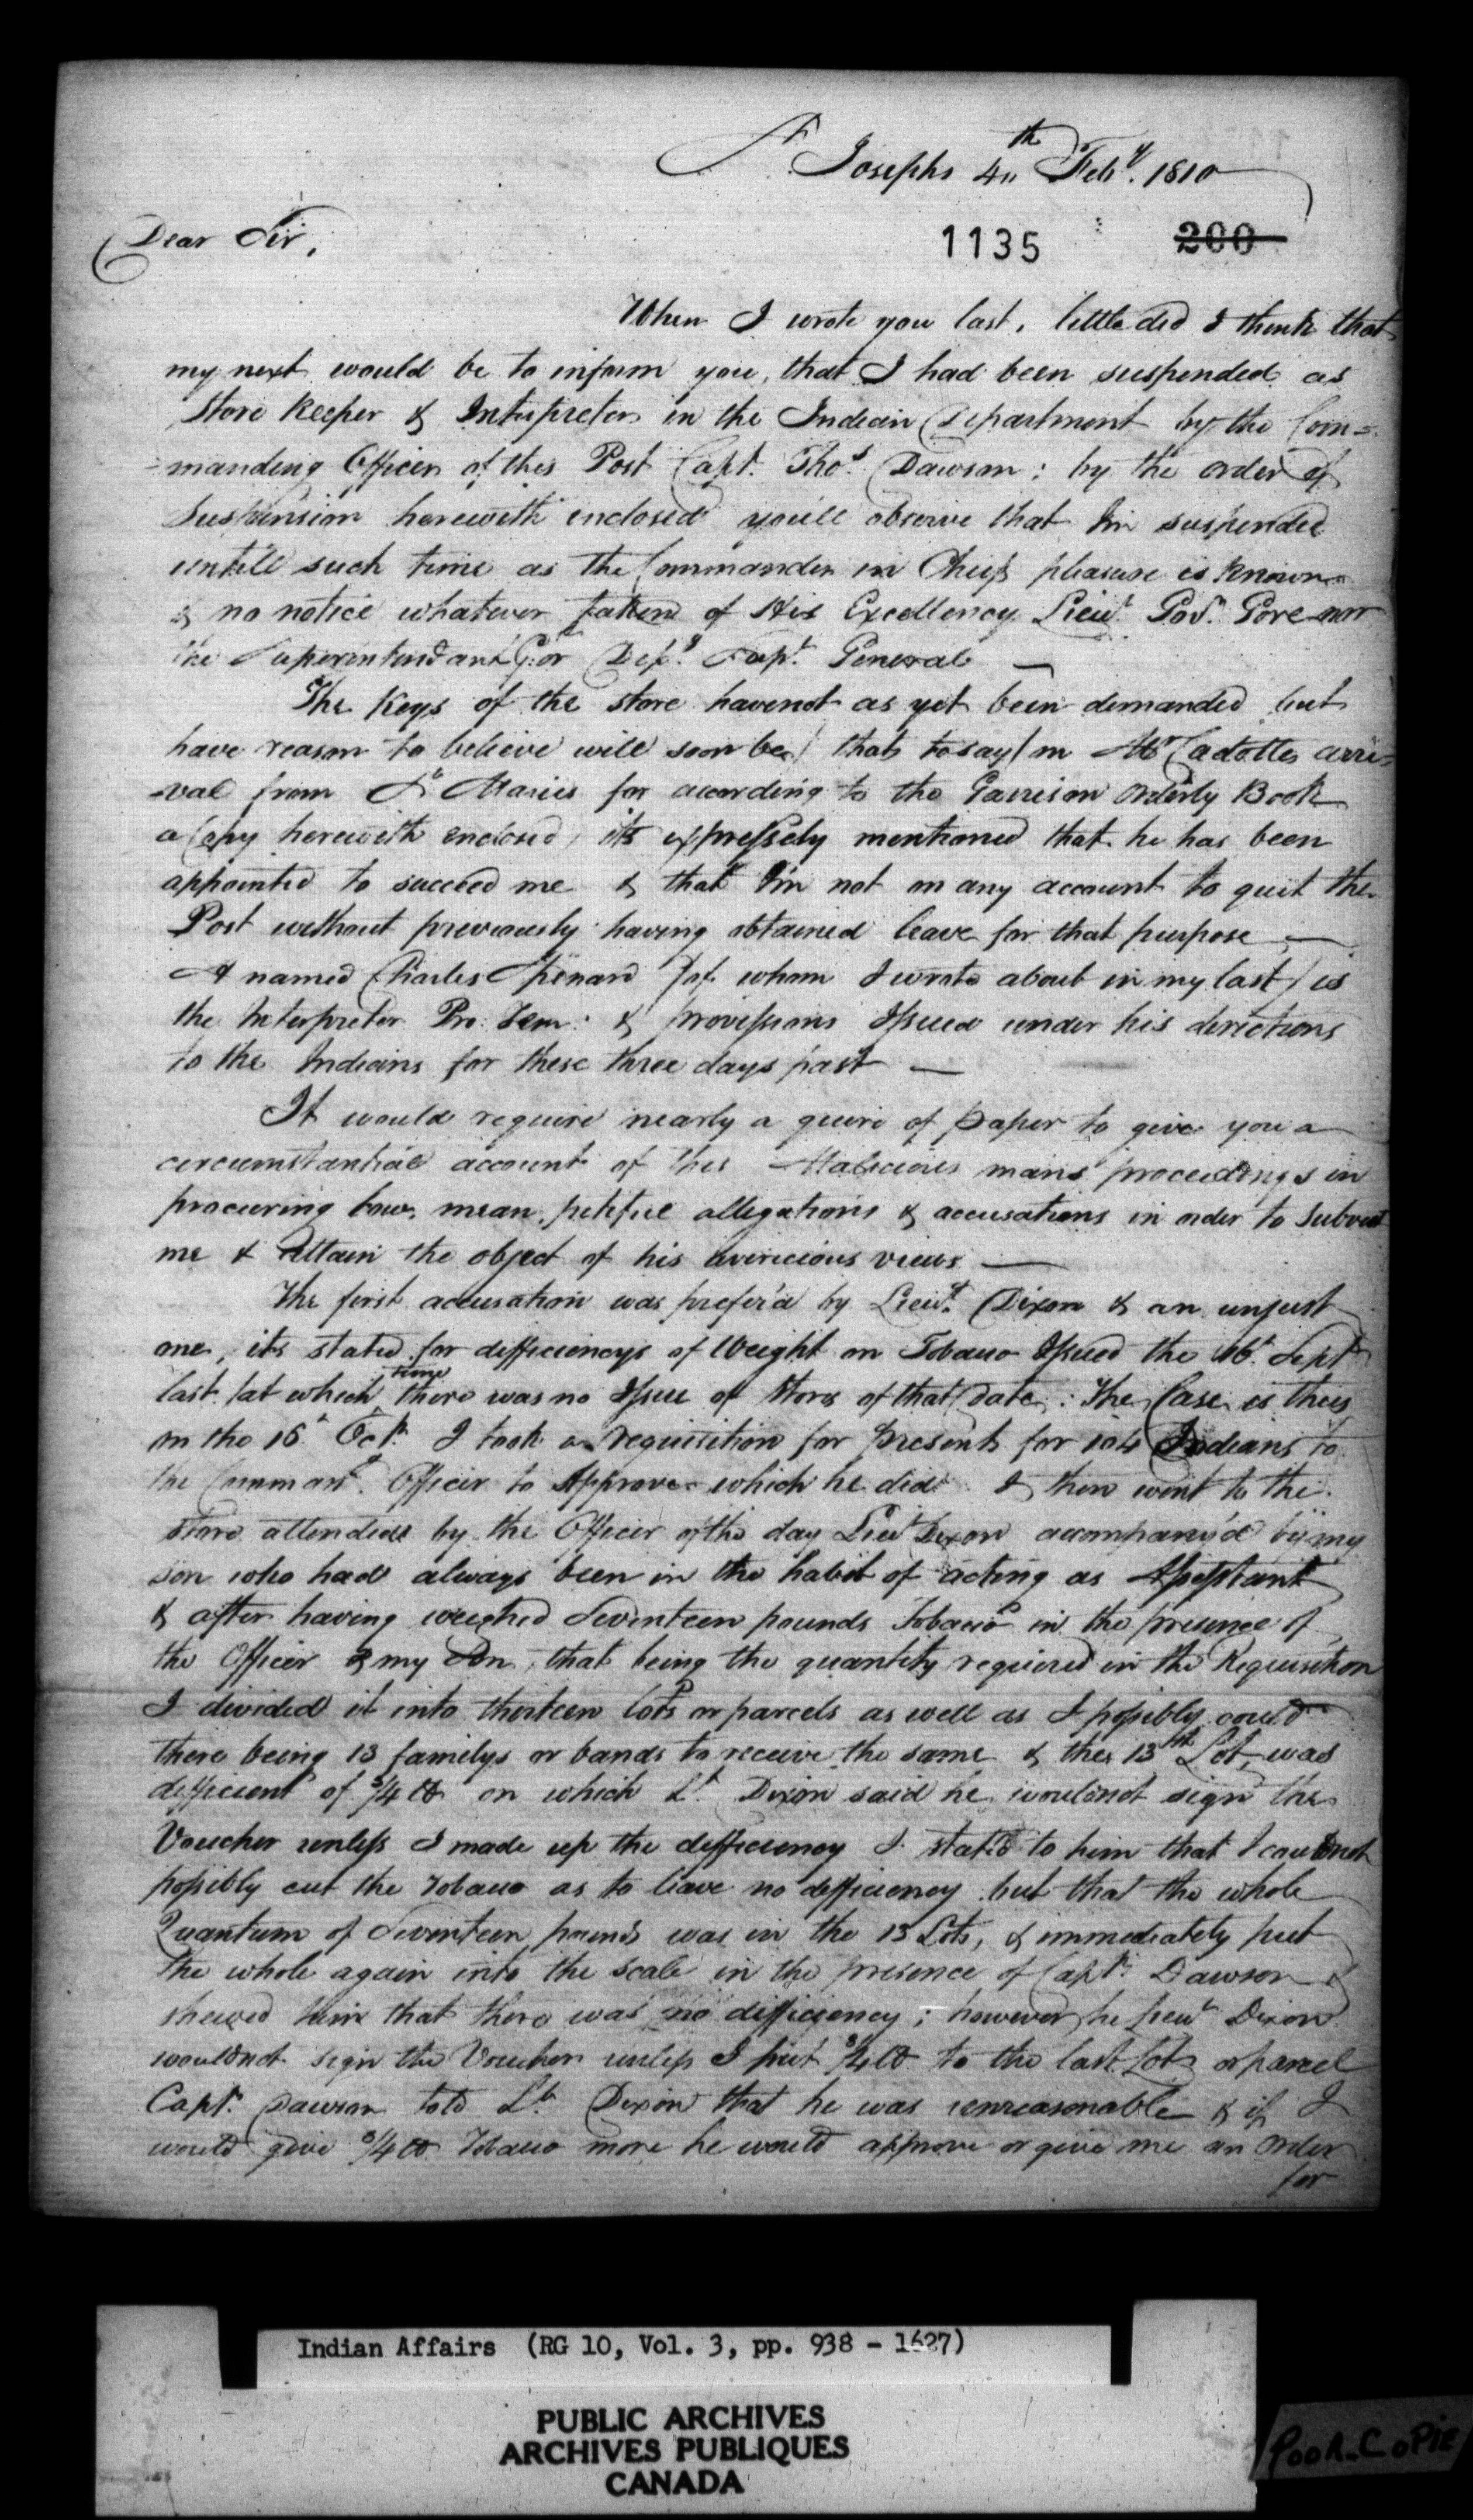 St. Josephs 4th Feby. 1810
1135 200
Dear Sir,
When I wrote you last, little did I think that
my next would be to inform you, that I had been suspended as
Store Keeper & Interpreter in the Indian Department by the Com=
=manding Officer of this Post Capt. Thos. Dawson: by the order of
Suspension herewith enclosed you'll observe that I'm suspended
untill such time as the Commander in Chiefs pleasure is known
& no notice whatever taken of His Excellency Lieut. Govr. Gore nor
the Superintendant G. or Depy. Supt. General —
The Keys of the Store have not as yet been demanded but
have reason to believe will soon be / that's to say / on Mr. Cadottes arri=
=val from St. Maries for according to the Garrison Orderly Book
a Copy herewith enclosed, its expressely mentioned that he has been
appointed to succeed me & that I'm not on any account to quit the
Post without previously having obtained leave for that purpose —
A named Charles / of whom I wrote about in my last / is
the Interpreter Pro. Tem: & provissions Issued under his directions
to the Indians for these three days past —
It would require nearly a quire of paper to give you a
circumstantial account of this Malicious man's proceedings in
procuring low, mean, pitifull allegations & accusations in order to Subvert
me & Attain the object of his avericious views —
The first accusation was prefer'd by Lieut. Dixon & an unjust
one, its stated for defficiencys of Weight on Tobacco Issued the 16t. Sept
last / at which time there was no Issue of Stores of that date: The Case is thus
on the 16t. Octr. I took a requisition for presents for 104 Indians to
the Commandg. Officer to Approve which he did & then went to the
Store attended by the Officer of the day Lieut Dixon accompany'd by my
son who had always been in the habit of acting as Assistant
& after having weighed Seventeen pounds Tobacco in the presence of
the Officer & my Son, that being the quantity required in the Requisition
I divided it into thirteen lots or parcels as well as I possibly could
there being 13 familys or bands to receive the same & the 13th Lot, was
defficient of 3/4 lb on which Lt. Dixon said he wouldnot sign the
Voucher unless I made up the defficiency I stated to him that I couldnot
possibly cut the Tobacco as to leave no defficiency but that the whole
Quantum of Seventeen pounds was in the 13 Lots, & immediately put
the whole again into the scale in the presence of Capt. Dawson &
shewed him that there was no difficiency; however he Lieut Dixon
wouldnot sign the Voucher unless I put 3/4 lb to the last Lot or parcel
Capt. Dawson told Lt. Dixon that he was unreasonable & if I
would give 3/4 lb Tobacco more he would approve or give me an Order
for
Indian Affairs (RG 10, Vol. 3, pp. 938 - 1627)
PUBLIC ARCHIVES
ARCHIVES PUBLIQUES
CANADA
POOR COPIE